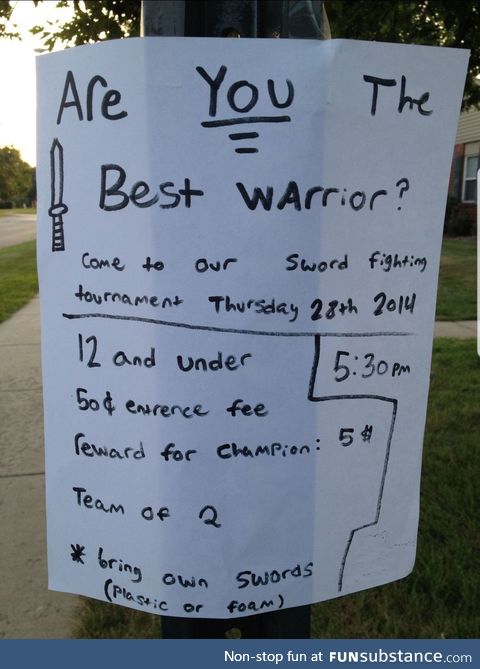 Are YOU The
Best Warrior?
Come to our Sword fighting
tournament Thursday 28th 2014
12 and under
5:30 PM
50¢ entrence fee
reward for champion: 5$
Team of 2
* bring own swords
(Plastic or foam)
Non-stop fun at FUNsubstance.com